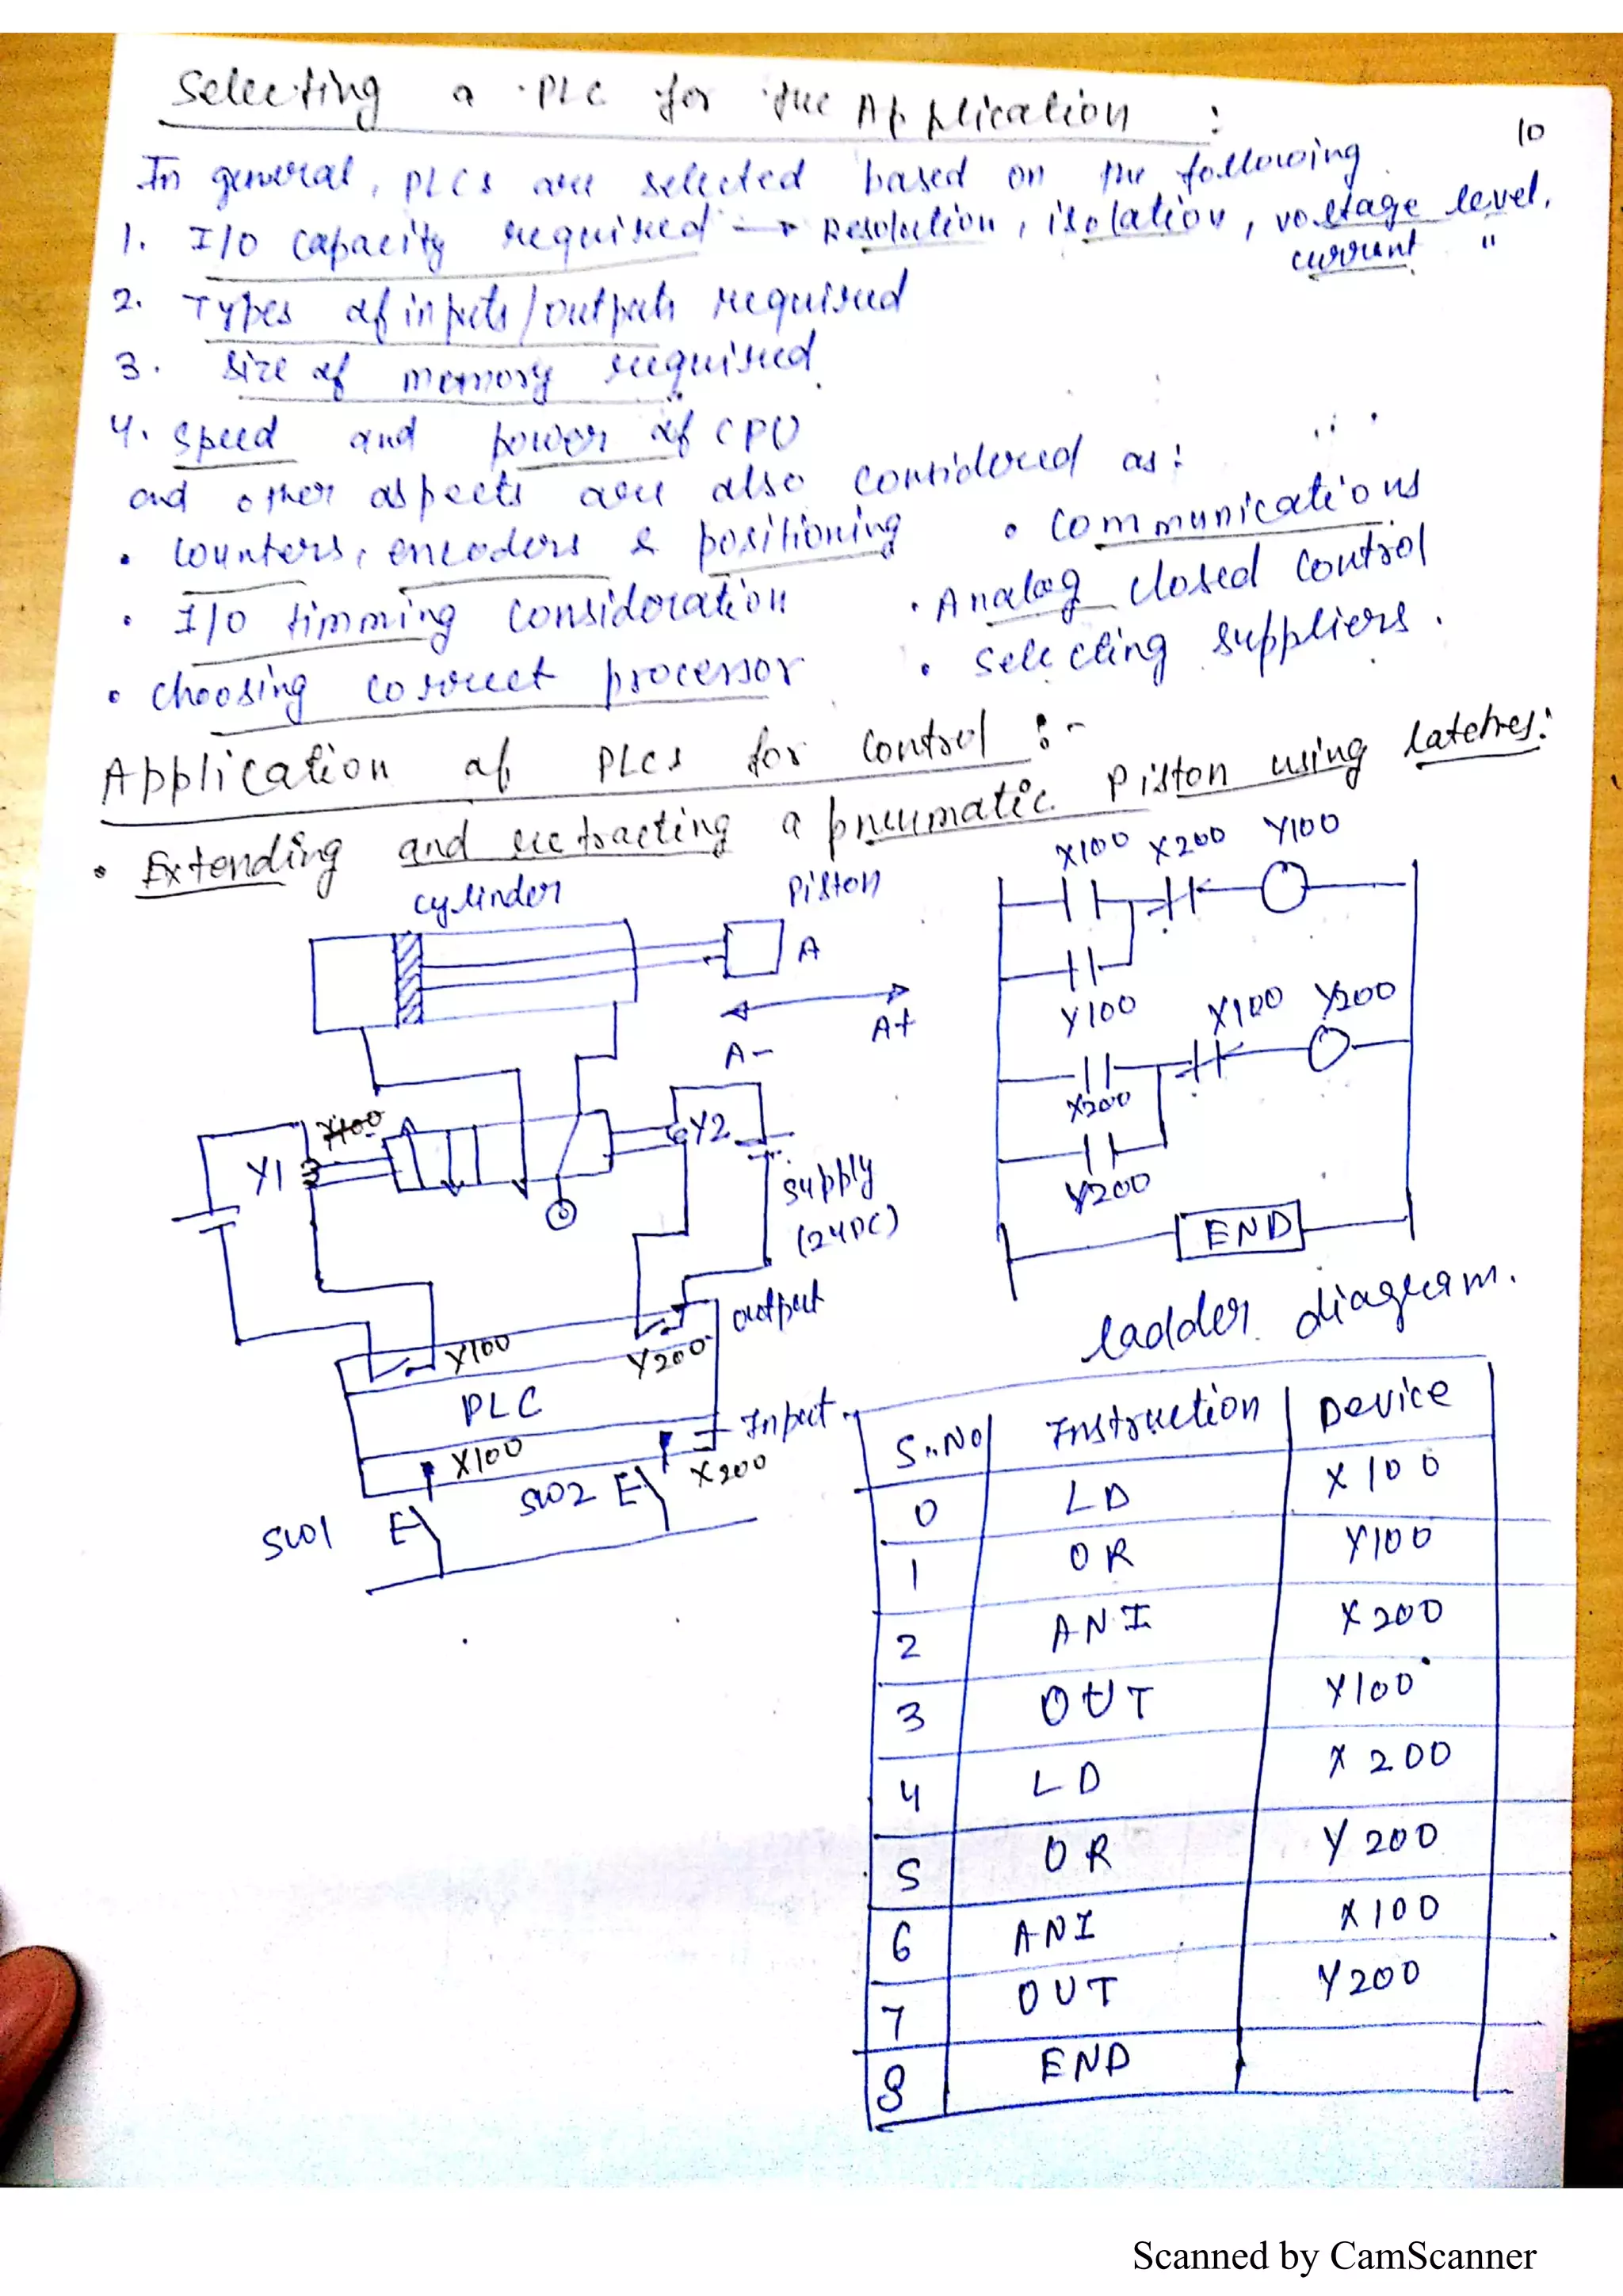 Selecting a PLC for the Application :
10
In general, PLCs are selected based on the following
1. I/O capacity required → Resolution, isolation, voltage level,
current "
2. Types of inputs/outputs required
3. size of memory required.
4. speed and power of CPU
and other aspects are also considered as :
• counters, encoders & positioning
• communications
• I/O timming consideration
• Analog closed control
• choosing correct processor
• selecting suppliers.
Application of PLCs for control :-
• Extending and retracting a pneumatic Piston using latches:
cylinder
Piston
A
A-
A+
Y100
Y1
Y2
supply
(24DC)
output
Y100
Y200
PLC
X100
Input
X200
SW1
SW2
X100 X200 Y100
Y100
X100 Y200
X200
Y200
END
ladder diagram.
S.No Instruction Device
0 LD X100
1 OR Y100
2 ANI X200
3 OUT Y100
4 LD X200
5 OR Y200
6 ANI X100
7 OUT Y200
8 END
Scanned by CamScanner